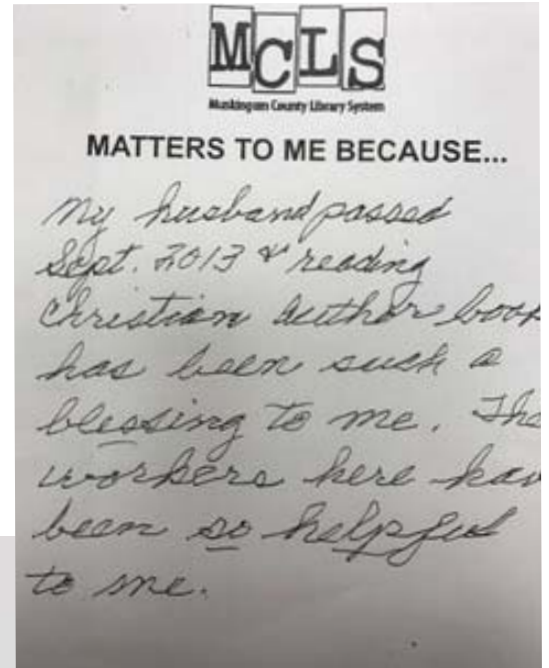 MCLS
Muskingum County Library System
MATTERS TO ME BECAUSE...
My husband passed
Sept. 2013 & reading
Christian author book
has been such a
blessing to me. The
workers here hav
been so helpful
to me.